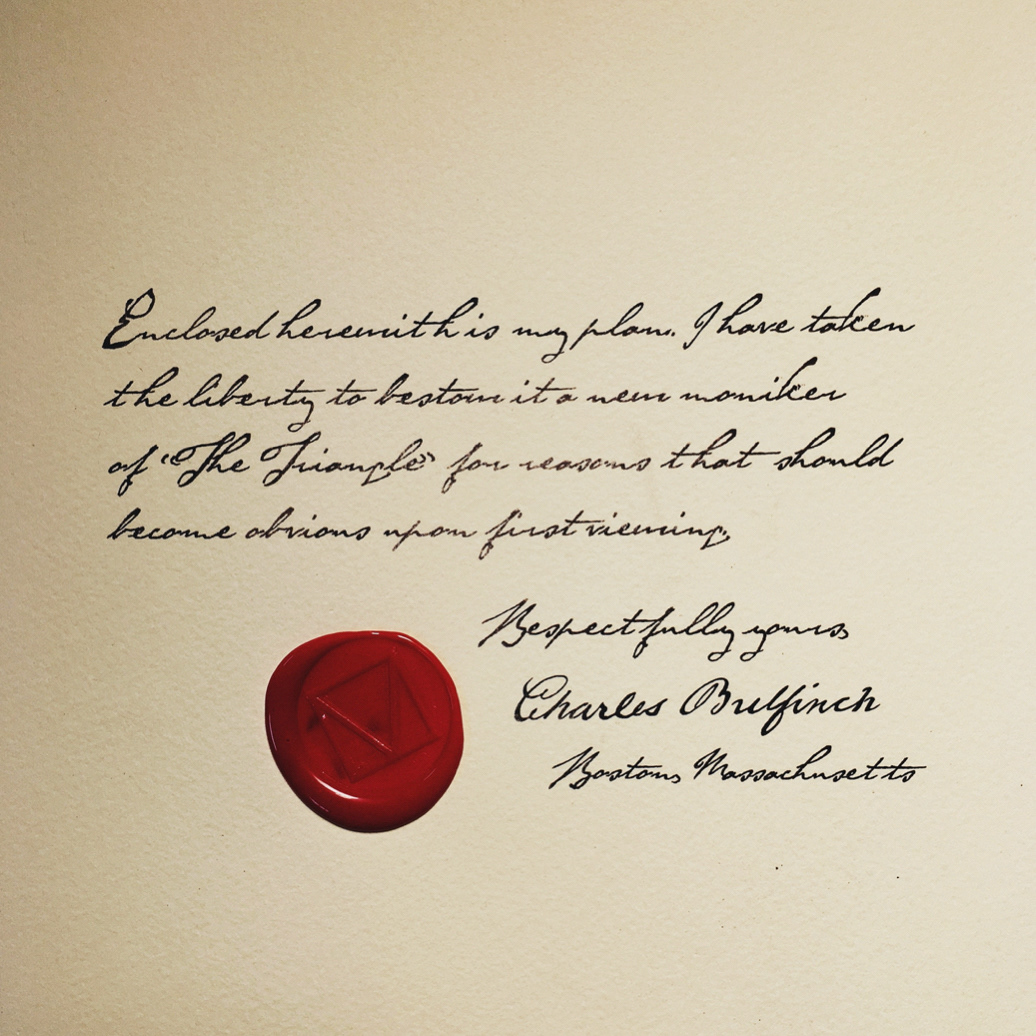 Enclosed herewith is my plan. I have taken
the liberty to bestow it a new moniker
of "The Triangle" for reasons that should
become obvious upon first viewing.
Respectfully yours,
Charles Bulfinch
Boston, Massachusetts